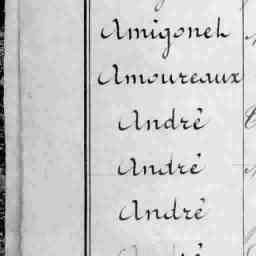 Amigonet
Amoureaux
André
André
André